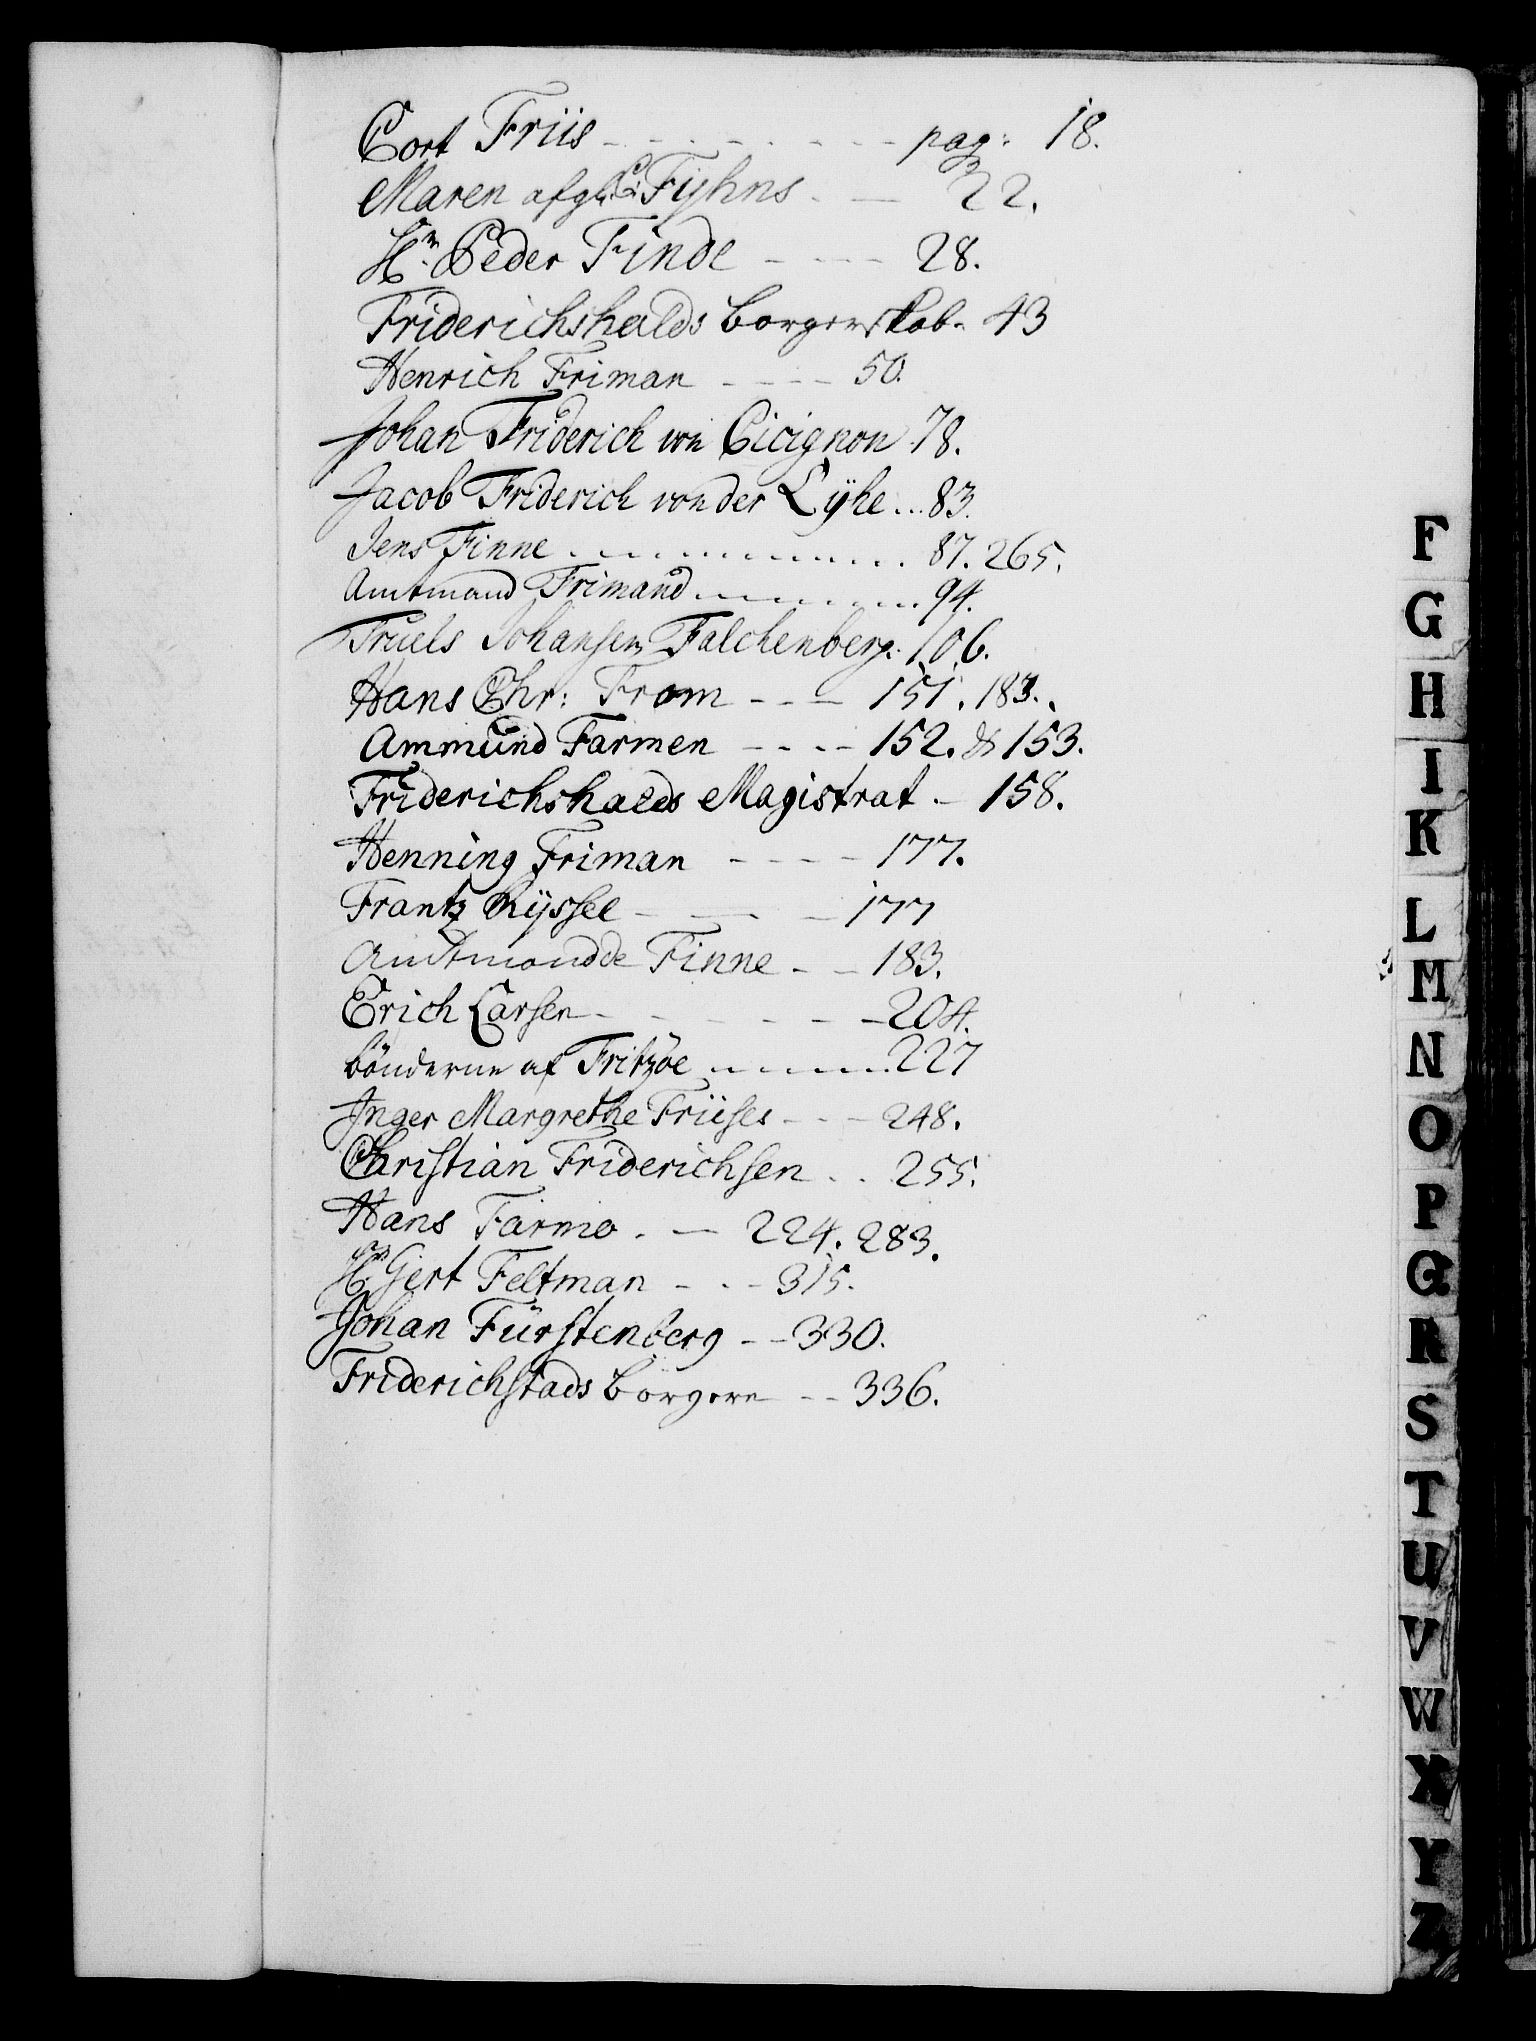 Cort Friis - - - - - - - pag: 18.
Maren afgl: Fyhns. - 22.
Hr. Peder Finde - - - 28.
Friderichshalds borgerskab. 43
Henrich Friman - - - - 50.
Johan Friderich von Cicignon 78.
Jacob Friderich von der Lÿhe ... 83.
Jens Finne . - - - - - - - - . 87. 265.
Amtmand Frimand - - - - - - - 94.
Truels Johansen Falchenberg. 106.
Hans Chr: From - - - 151. 183.
Ammund Farmen - - - - 152. & 153.
Friderichshalds Magistrat. - 158.
Henning Friman - - - - 177.
Frantz Rÿssel - - - 177
Amtmand de Finne - - 183.
Erich Larsen - - - - - - - 204.
bönderne af Fritzöe - - - - - - 227
Inger Margrethe Friises - - - 248.
Christian Friderichsen . . 255.
Hans Farmo. - 224. 283.
Hr. Gert Feltman - - - 315.
Johan Fürstenberg - - 330.
Friderichstads borgere - - 336.
F
G
H
I
K
L
M
N
O
P
Q
R
S
T
U
V
W
X
Y
Z